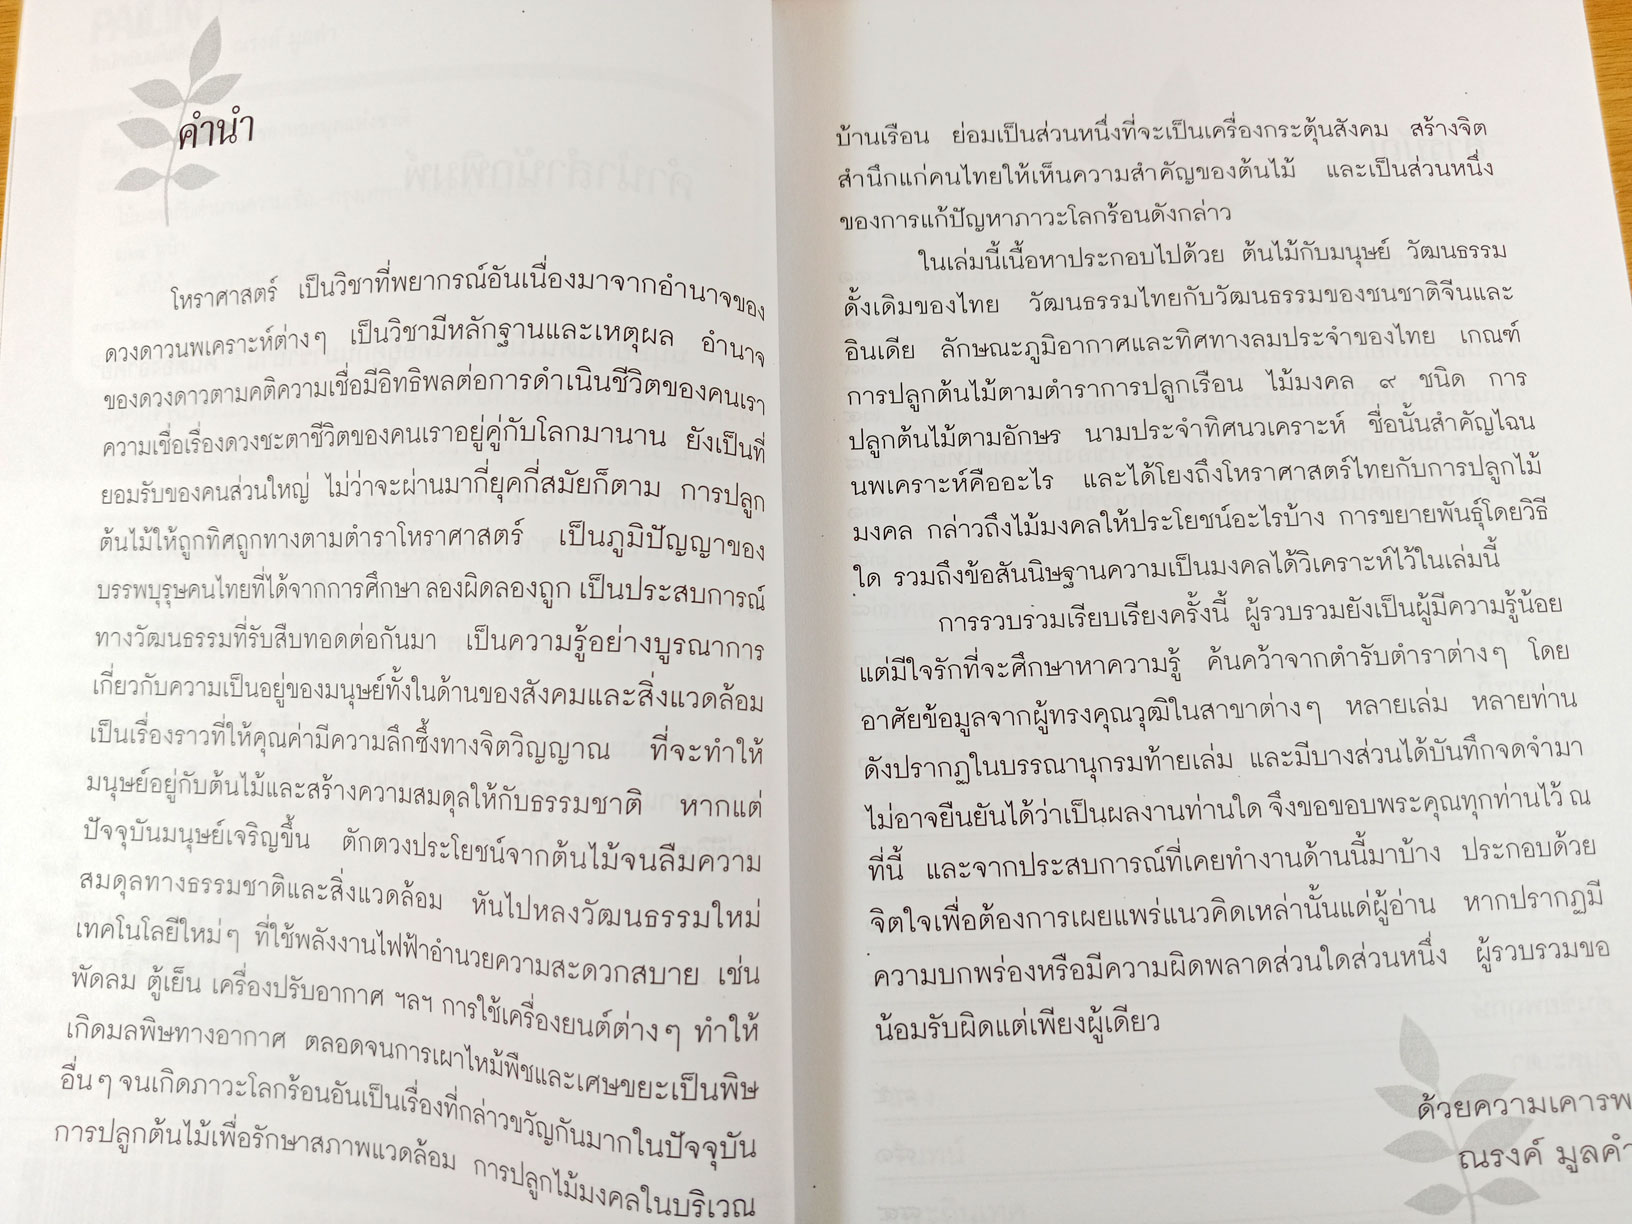 คำนำ
โหราศาสตร์ เป็นวิชาที่พยากรณ์อันเนื่องมาจากอำนาจของ
ดวงดาวนพเคราะห์ต่างๆ เป็นวิชามีหลักฐานและเหตุผล อำนาจ
ของดวงดาวตามคติความเชื่อมีอิทธิพลต่อการดำเนินชีวิตของคนเรา
ความเชื่อเรื่องดวงชะตาชีวิตของคนเราอยู่คู่กับโลกมานาน ยังเป็นที่
ยอมรับของคนส่วนใหญ่ ไม่ว่าจะผ่านมากี่ยุคกี่สมัยก็ตาม การปลูก
ต้นไม้ให้ถูกทิศถูกทางตามตำราโหราศาสตร์ เป็นภูมิปัญญาของ
บรรพบุรุษคนไทยที่ได้จากการศึกษา ลองผิดลองถูก เป็นประสบการณ์
ทางวัฒนธรรมที่รับสืบทอดต่อกันมา เป็นความรู้อย่างบูรณาการ
เกี่ยวกับความเป็นอยู่ของมนุษย์ทั้งในด้านของสังคมและสิ่งแวดล้อม
เป็นเรื่องราวที่ให้คุณค่ามีความลึกซึ้งทางจิตวิญญาณ ที่จะทำให้
มนุษย์อยู่กับต้นไม้และสร้างความสมดุลให้กับธรรมชาติ หากแต่
ปัจจุบันมนุษย์เจริญขึ้น ตักตวงประโยชน์จากต้นไม้จนลืมความ
สมดุลทางธรรมชาติและสิ่งแวดล้อม หันไปหลงวัฒนธรรมใหม่
เทคโนโลยีใหม่ๆ ที่ใช้พลังงานไฟฟ้าอำนวยความสะดวกสบาย เช่น
พัดลม ตู้เย็น เครื่องปรับอากาศ ฯลฯ การใช้เครื่องยนต์ต่างๆ ทำให้
เกิดมลพิษทางอากาศ ตลอดจนการเผาไหม้พืชและเศษขยะเป็นพิษ
อื่นๆ จนเกิดภาวะโลกร้อนอันเป็นเรื่องที่กล่าวขวัญกันมากในปัจจุบัน
การปลูกต้นไม้เพื่อรักษาสภาพแวดล้อม การปลูกไม้มงคลในบริเวณ
บ้านเรือน ย่อมเป็นส่วนหนึ่งที่จะเป็นเครื่องกระตุ้นสังคม สร้างจิต
สำนึกแก่คนไทยให้เห็นความสำคัญของต้นไม้ และเป็นส่วนหนึ่ง
ของการแก้ปัญหาภาวะโลกร้อนดังกล่าว
ในเล่มนี้เนื้อหาประกอบไปด้วย ต้นไม้กับมนุษย์ วัฒนธรรม
ดั้งเดิมของไทย วัฒนธรรมไทยกับวัฒนธรรมของชนชาติจีนและ
อินเดีย ลักษณะภูมิอากาศและทิศทางลมประจำของไทย เกณฑ์
การปลูกต้นไม้ตามตำราการปลูกเรือน ไม้มงคล ๙ ชนิด การ
ปลูกต้นไม้ตามอักษร นามประจำทิศนวเคราะห์ ชื่อนั้นสำคัญไฉน
นพเคราะห์คืออะไร และได้โยงถึงโหราศาสตร์ไทยกับการปลูกไม้
มงคล กล่าวถึงไม้มงคลให้ประโยชน์อะไรบ้าง การขยายพันธุ์โดยวิธี
ใด รวมถึงข้อสันนิษฐานความเป็นมงคลได้วิเคราะห์ไว้ในเล่มนี้
การรวบรวมเรียบเรียงครั้งนี้ ผู้รวบรวมยังเป็นผู้มีความรู้น้อย
แต่มีใจรักที่จะศึกษาหาความรู้ ค้นคว้าจากตำรับตำราต่างๆ โดย
อาศัยข้อมูลจากผู้ทรงคุณวุฒิในสาขาต่างๆ หลายเล่ม หลายท่าน
ดังปรากฏในบรรณานุกรมท้ายเล่ม และมีบางส่วนได้บันทึกจดจำมา
ไม่อาจยืนยันได้ว่าเป็นผลงานท่านใด จึงขอขอบพระคุณทุกท่านไว้ ณ
ที่นี้ และจากประสบการณ์ที่เคยทำงานด้านนี้มาบ้าง ประกอบด้วย
จิตใจเพื่อต้องการเผยแพร่แนวคิดเหล่านั้นแด่ผู้อ่าน หากปรากฏมี
ความบกพร่องหรือมีความผิดพลาดส่วนใดส่วนหนึ่ง ผู้รวบรวมขอ
น้อมรับผิดแต่เพียงผู้เดียว
ด้วยความเคารพ
ณรงค์ มูลคำ